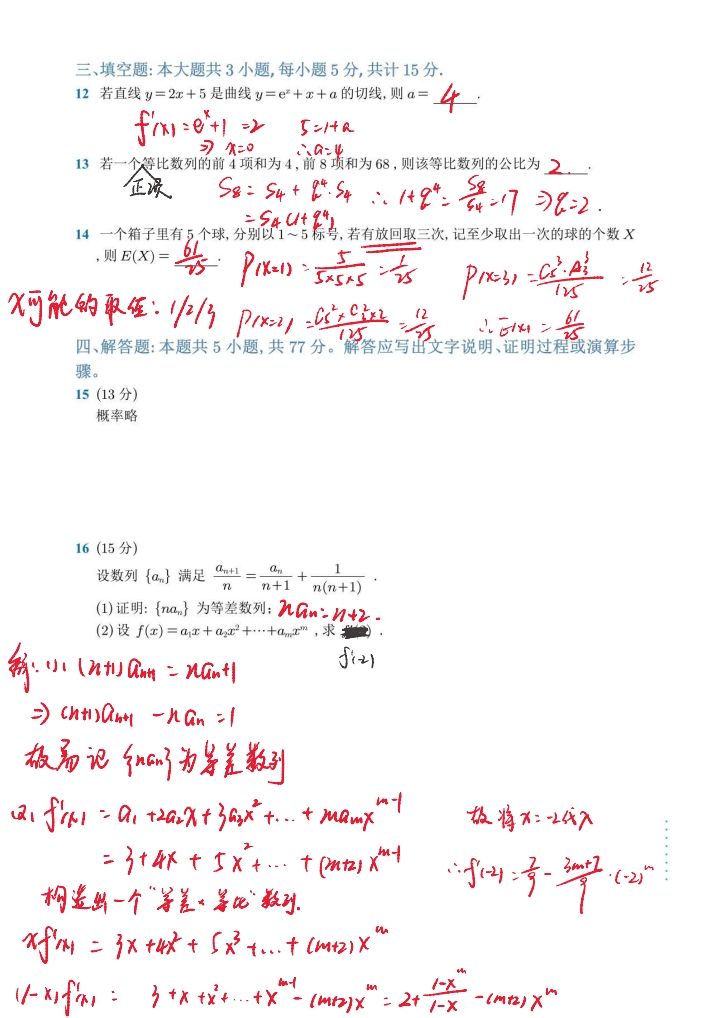 三、填空题: 本大题共 3 小题, 每小题 5 分, 共计 15 分.
12 若直线 y = 2x + 5 是曲线 y = e^x + x + a 的切线, 则 a = 4 .
f'(x) = e^x + 1 = 2 5 = 1 + a
⇒ x = 0 ∴ a = 4
13 若一个等比数列的前 4 项和为 4 , 前 8 项和为 68 , 则该等比数列的公比为 2 .
正项 S8 = S4 + q^4 · S4 ∴ 1 + q^4 = S8/S4 = 17 ⇒ q = 2 .
= S4 (1 + q^4)
14 一个箱子里有 5 个球, 分别以 1 ~ 5 标号, 若有放回取三次, 记至少取出一次的球的个数 X
, 则 E(X) = 61/25 .
P(X=1) = 5/(5×5×5) = 1/25 P(X=3) = C5^3 · A3^3 / 125 = 12/25
X可能的取值: 1/2/3 P(X=2) = C5^2 × C3^2 × 2 / 125 = 12/25 ∴ E(X) = 61/25
四、解答题: 本题共 5 小题, 共 77 分。解答应写出文字说明、证明过程或演算步
骤。
15 (13 分)
概率略
16 (15 分)
设数列 {a_n} 满足 a_{n+1}/n = a_n/(n+1) + 1/(n(n+1)) .
(1) 证明: {na_n} 为等差数列; na_n = n+2 .
(2) 设 f(x) = a_1x + a_2x^2 + ··· + a_mx^m , 求 .
f'(-2)
解: (1) (n+1)a_{n+1} = na_n + 1
⇒ (n+1)a_{n+1} - na_n = 1
故易记 {na_n} 为等差数列
(2) f'(x) = a_1 + 2a_2x + 3a_3x^2 + ... + ma_mx^{m-1}
= 3 + 4x + 5x^2 + ... + (m+2)x^{m-1}
构造出一个“等差×等比”数列.
xf'(x) = 3x + 4x^2 + 5x^3 + ... + (m+2)x^m
(1-x)f'(x) = 3 + x + x^2 + ... + x^{m-1} - (m+2)x^m = 2 + (1-x^m)/(1-x) - (m+2)x^m
故将 x = -2代入
∴ f'(-2) = 7/9 - (3m+7)/9 · (-2)^m